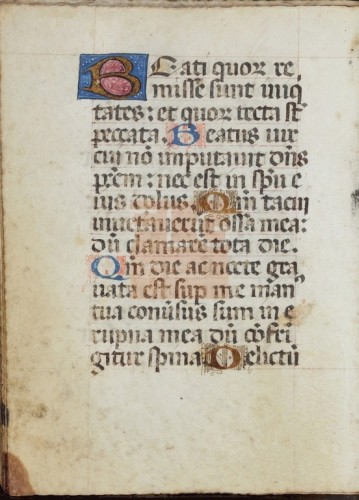 Beati quoꝝ re
misse sunt iniq
tates: et quoꝝ tecta st̄
peccata. Beatus vir
cui nō imputauit dn̄s
pctm̄: nec est in spū e
ius dolus. Qm̄ tacui
inuetauerūt ossa mea:
dū clamarē tota die.
Qm̄ die ac nocte gra
uata est sup me man
tua conuersus sum in e
rupna mea dū cōfri
gitur spina Delictū